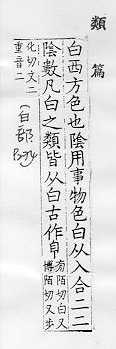 類篇
白西方色也陰用事物色白从入合二二
陰數凡白之類皆从白古作
旁陌切白又
博陌切又步
化切文二
重音二
(白部